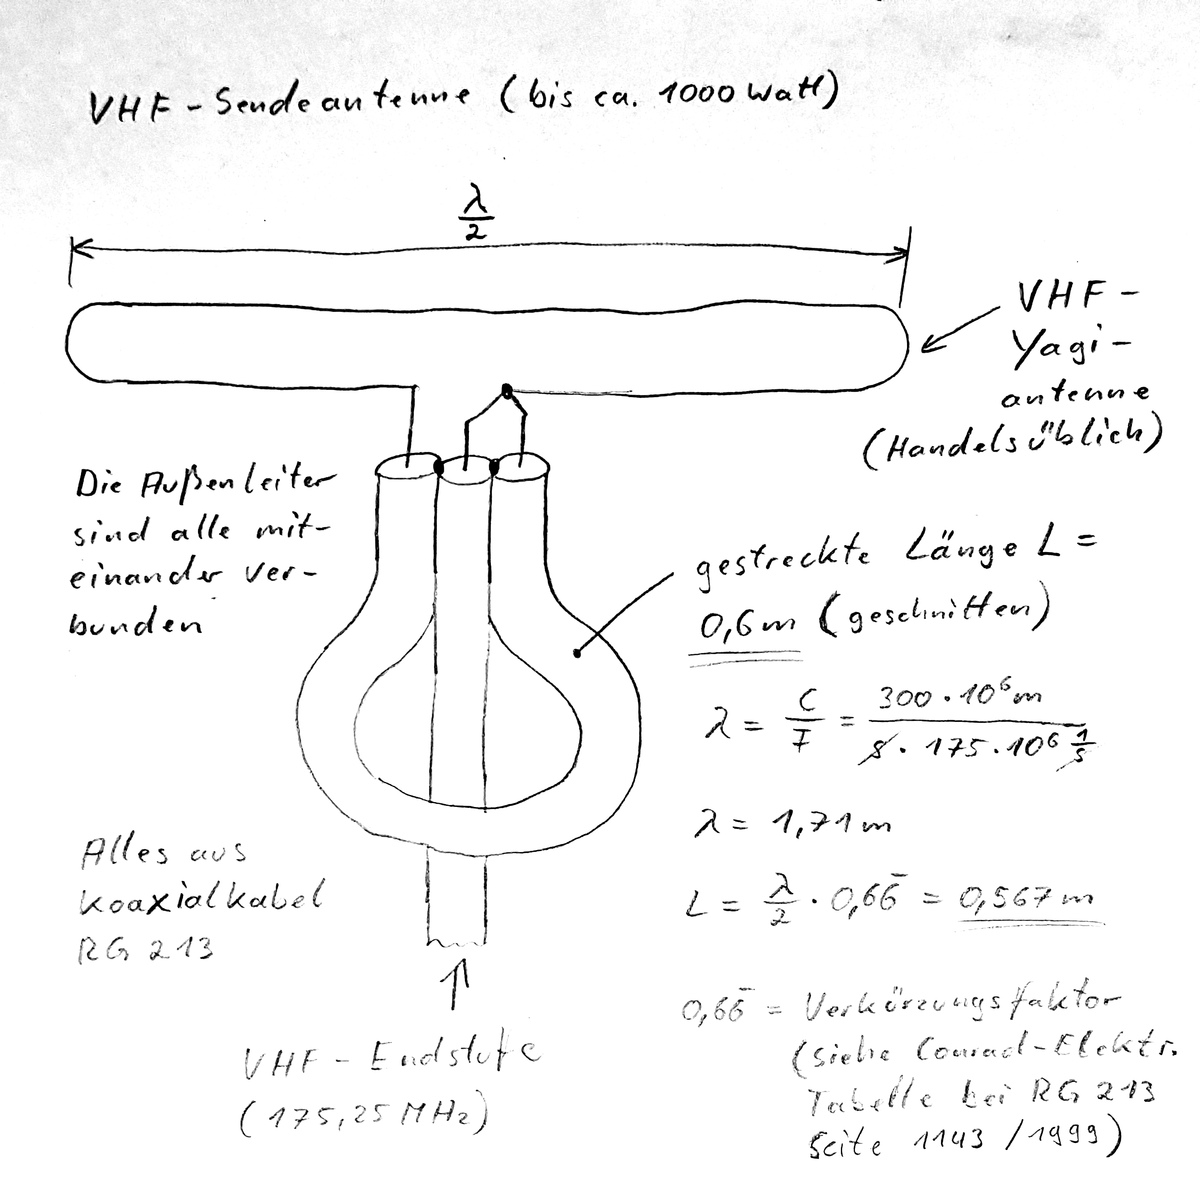 VHF-Sendeantenne (bis ca. 1000 Watt)
λ/2
VHF-
Yagi-
antenne
(Handelsüblich)
Die Außenleiter
sind alle mit-
einander ver-
bunden
gestreckte Länge L =
0,6m (geschnitten)
λ = C/F = 300 · 10⁶ m / s · 175 · 10⁶ 1/s
λ = 1,71m
L = λ/2 · 0,66̅ = 0,567m
Alles aus
Koaxialkabel
RG 213
VHF-Endstufe
(175,25 MHz)
0,66̅ = Verkürzungsfaktor
(siehe Conrad-Elektr.
Tabelle bei RG 213
Seite 1143 / 1999)